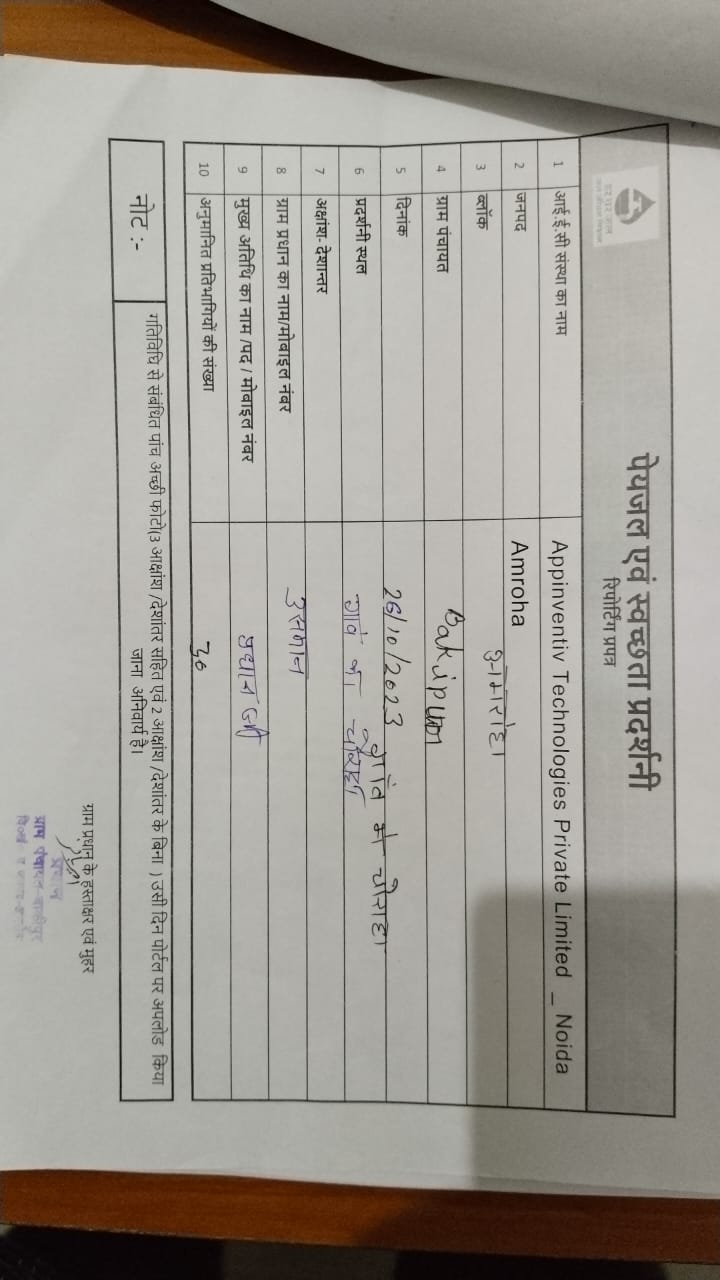 हर घर जल
जल जीवन मिशन
पेयजल एवं स्वच्छता प्रदर्शनी
रिपोर्टिंग प्रपत्र
1 आई.ई.सी संस्था का नाम Appinventiv Technologies Private Limited _ Noida
2 जनपद Amroha
3 ब्लॉक अमरोहा
4 ग्राम पंचायत Bakipur
5 दिनांक 26/10/2023
6 प्रदर्शनी स्थल गावं का चौराहा
7 अक्षांश- देशान्तर
8 ग्राम प्रधान का नाम/मोबाइल नंबर
9 मुख्य अतिथि का नाम /पद / मोबाइल नंबर प्रधान जी
10 अनुमानित प्रतिभागियों की संख्या 30
नोट :- गतिविधि से संबंधित पांच अच्छी फोटो(3 आक्षांश /देशांतर सहित एवं 2 आक्षांश /देशांतर के बिना ) उसी दिन पोर्टल पर अपलोड किया
जाना अनिवार्य है।
ग्राम प्रधान के हस्ताक्षर एवं मुहर
प्रधान
ग्राम पंचायत-बाकीपुर